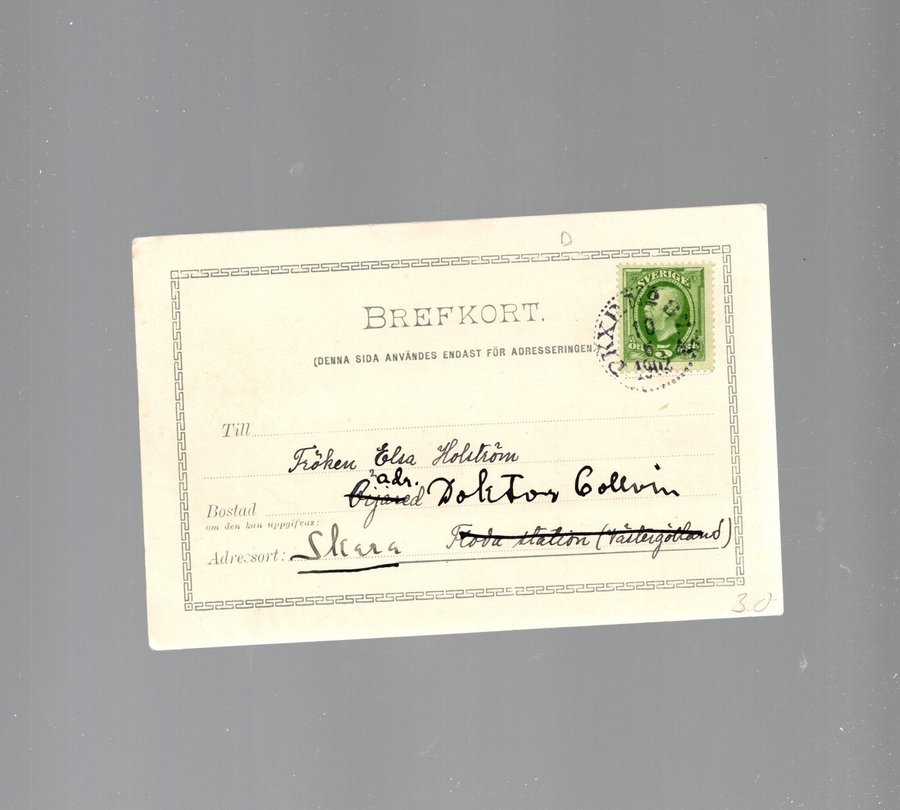 D
SVERIGE
ÖRE 5
PKXP
10
6
1902
BREFKORT.
(DENNA SIDA ANVÄNDES ENDAST FÖR ADRESSERINGEN.)
Till
Fröken Elsa Holström
adr.
Bostad Öijared Doktor Collvin
om den kan uppgifvas:
Adressort: Skara Floda station (Västergötland)
3.0